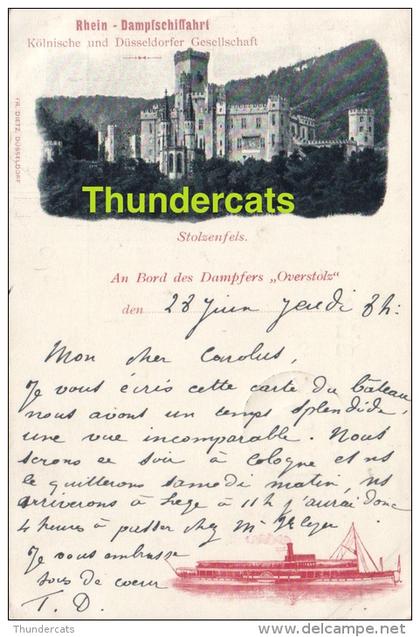 Rhein - Dampfschiffahrt
Kölnische und Düsseldorfer Gesellschaft
FR. DIETZ, DÜSSELDORF
Thundercats
Stolzenfels.
An Bord des Dampfers „Overstolz"
den 28 juin jeudi 8h.
Mon cher Carolus,
Je vous écris cette carte du bâteau,
nous avons un temps splendide
une vue incomparable. Nous
serons ce soir à Cologne et ns
le quitterons samedi matin, ns
arriverons à Liege à 11h j'aurai donc
4 heures à passer chez Mr
Je vous embrasse
de coeur
T. D.
Thundercats
delcampe.net